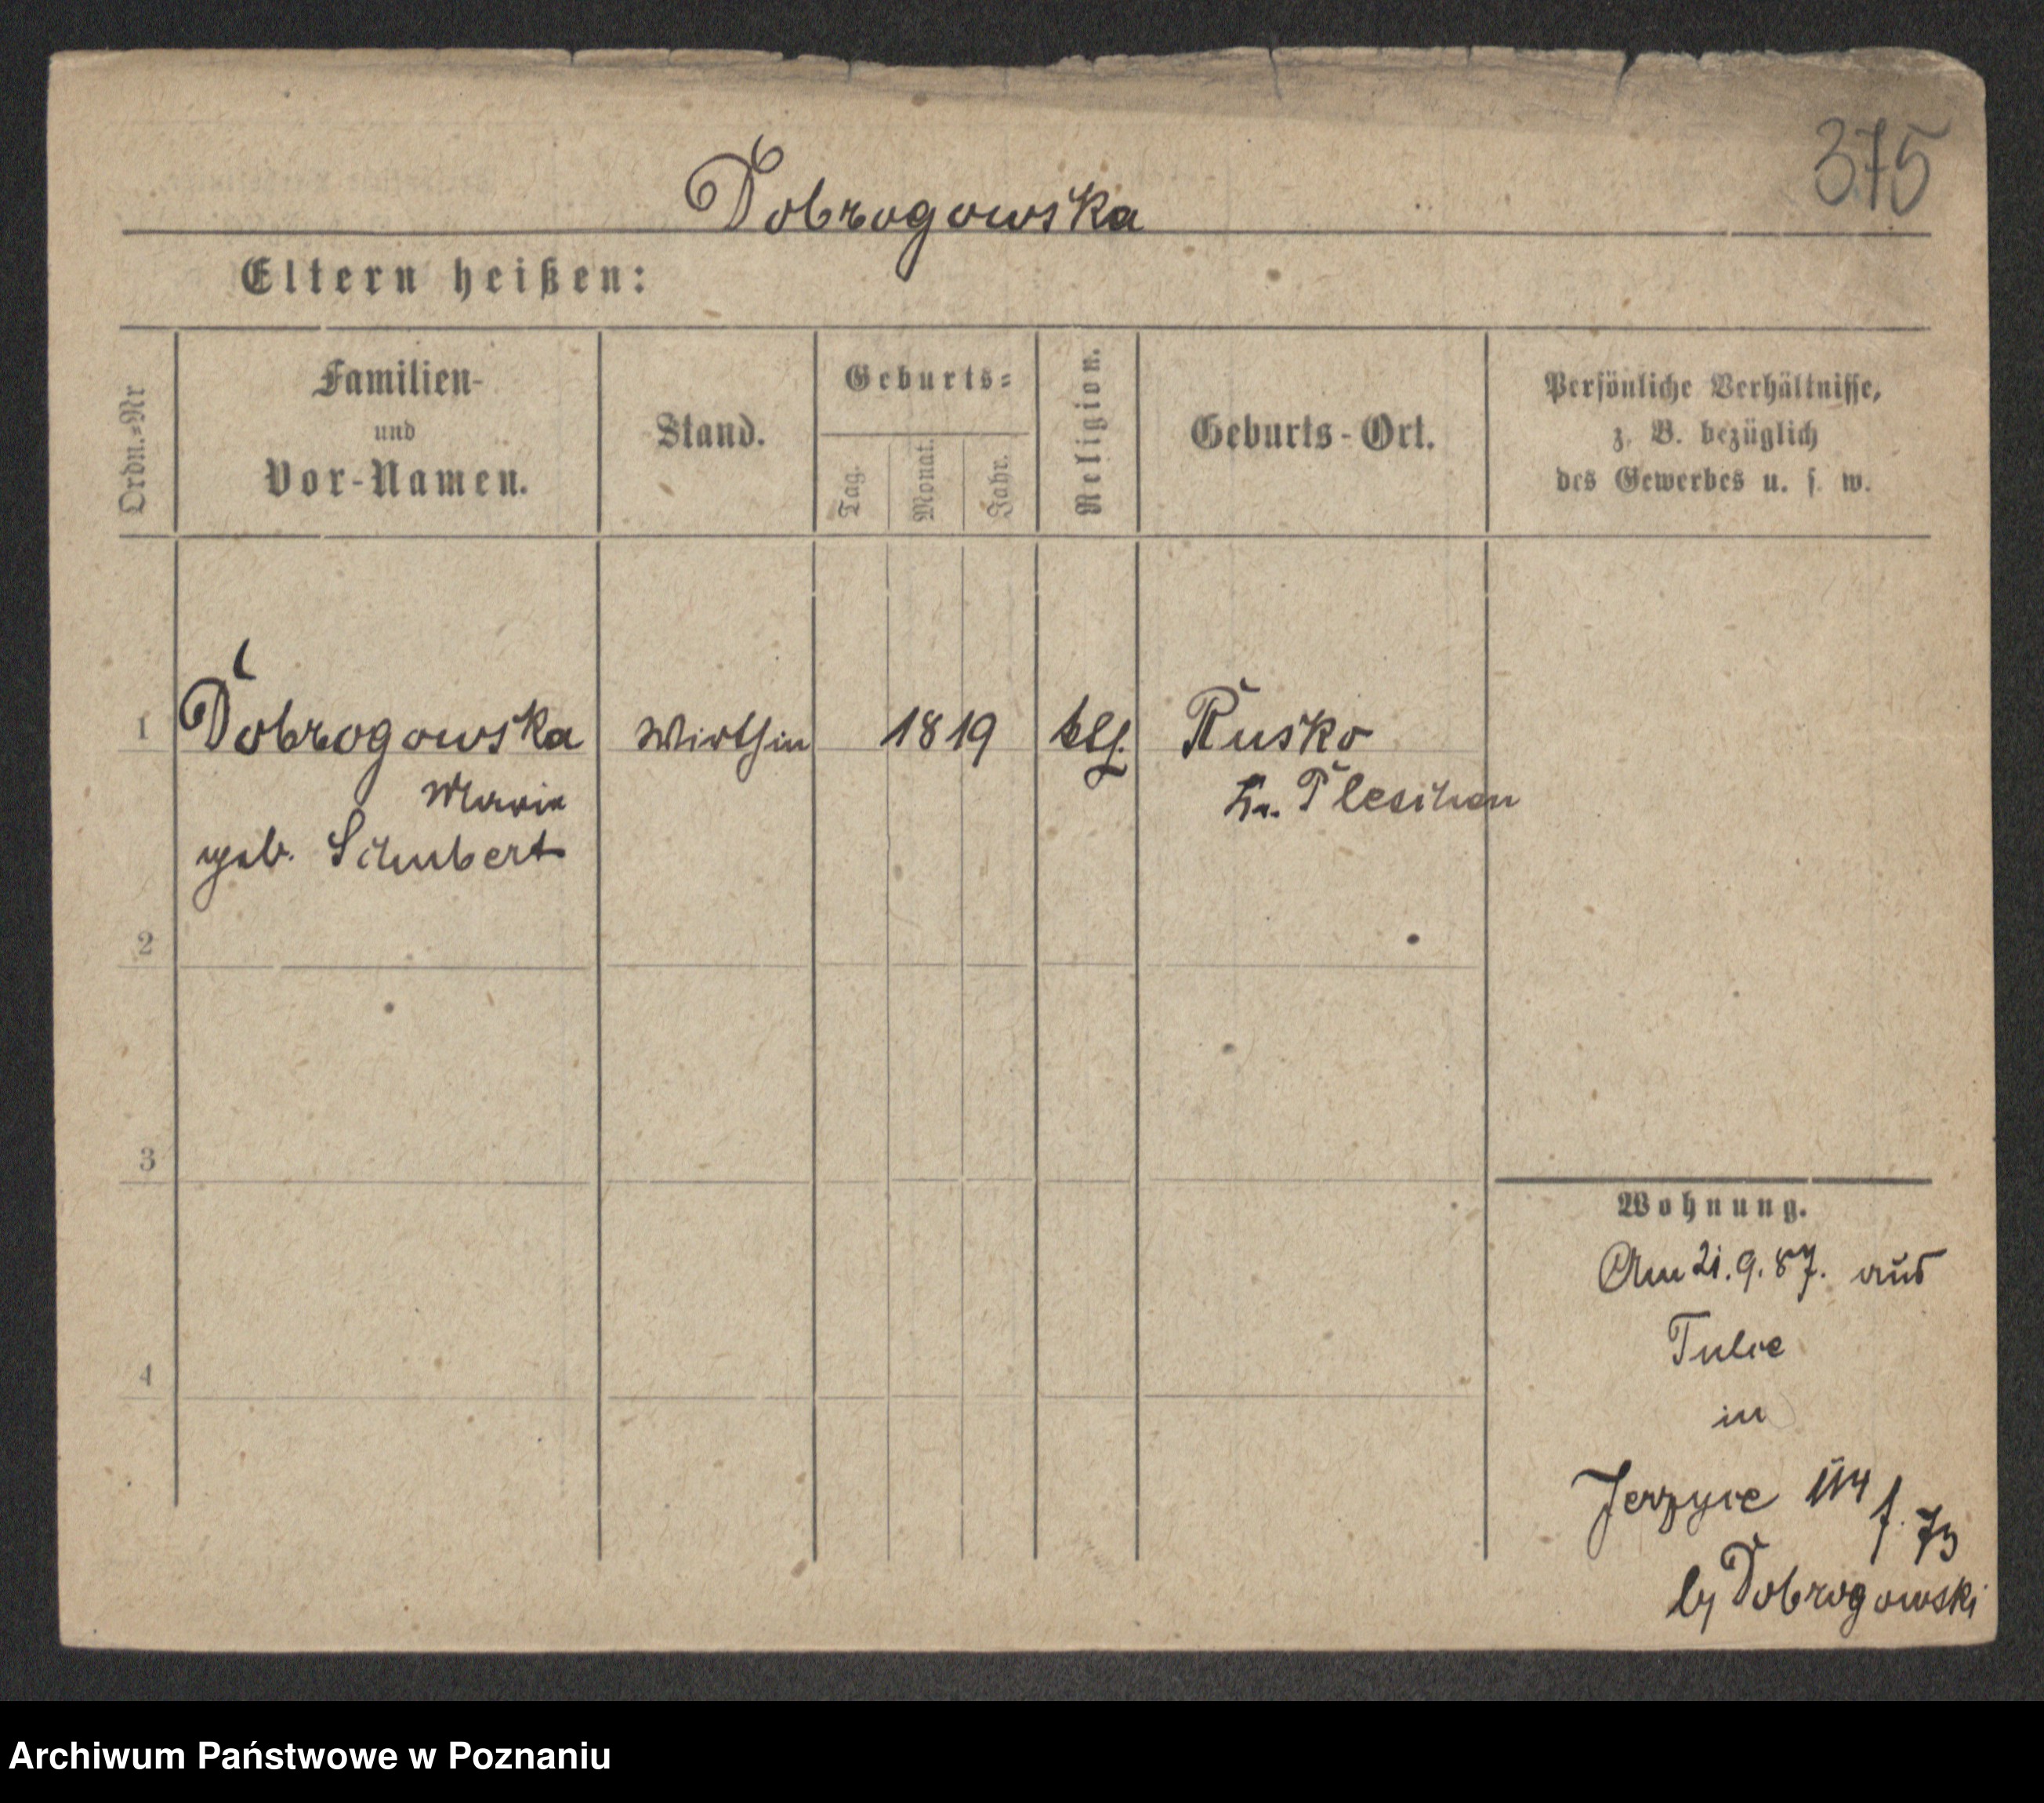 375
Dobrogowska
Eltern heißen:
Ordn.=Nr
Familien-
und
Vor-Namen.
Stand.
Geburts=
Tag.
Monat.
Jahr.
Religion.
Geburts-Ort.
Persönliche Verhältnisse,
z. B. bezüglich
des Gewerbes u. s. w.
1 Dobrogowska Wirthin 1819 kth. Rusko
Maria Kr. Pleschen
geb. Schubert
2
3
4
Wohnung.
Am 21.9.87. aus
Tulce
in
Jerzyce 114
f. 73
by Dobrogowski
Archiwum Państwowe w Poznaniu